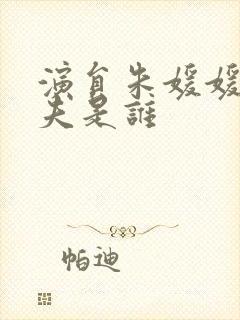 演員朱媛媛
夫是誰
帕迪